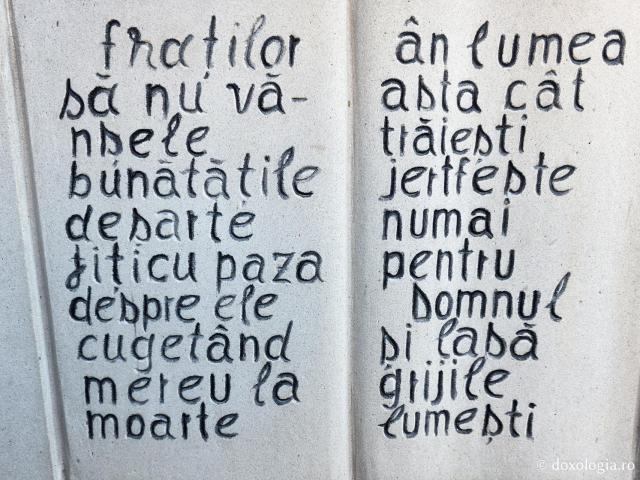 fraților
să nu vă-
nsele
bunătățile
desarte
fiți cu paza
despre ele
cugetând
mereu la
moarte
ân lumea
asta cât
trăiești
jertfește
numai
pentru
Domnul
și lasă
grijile
lumești
© doxologia.ro